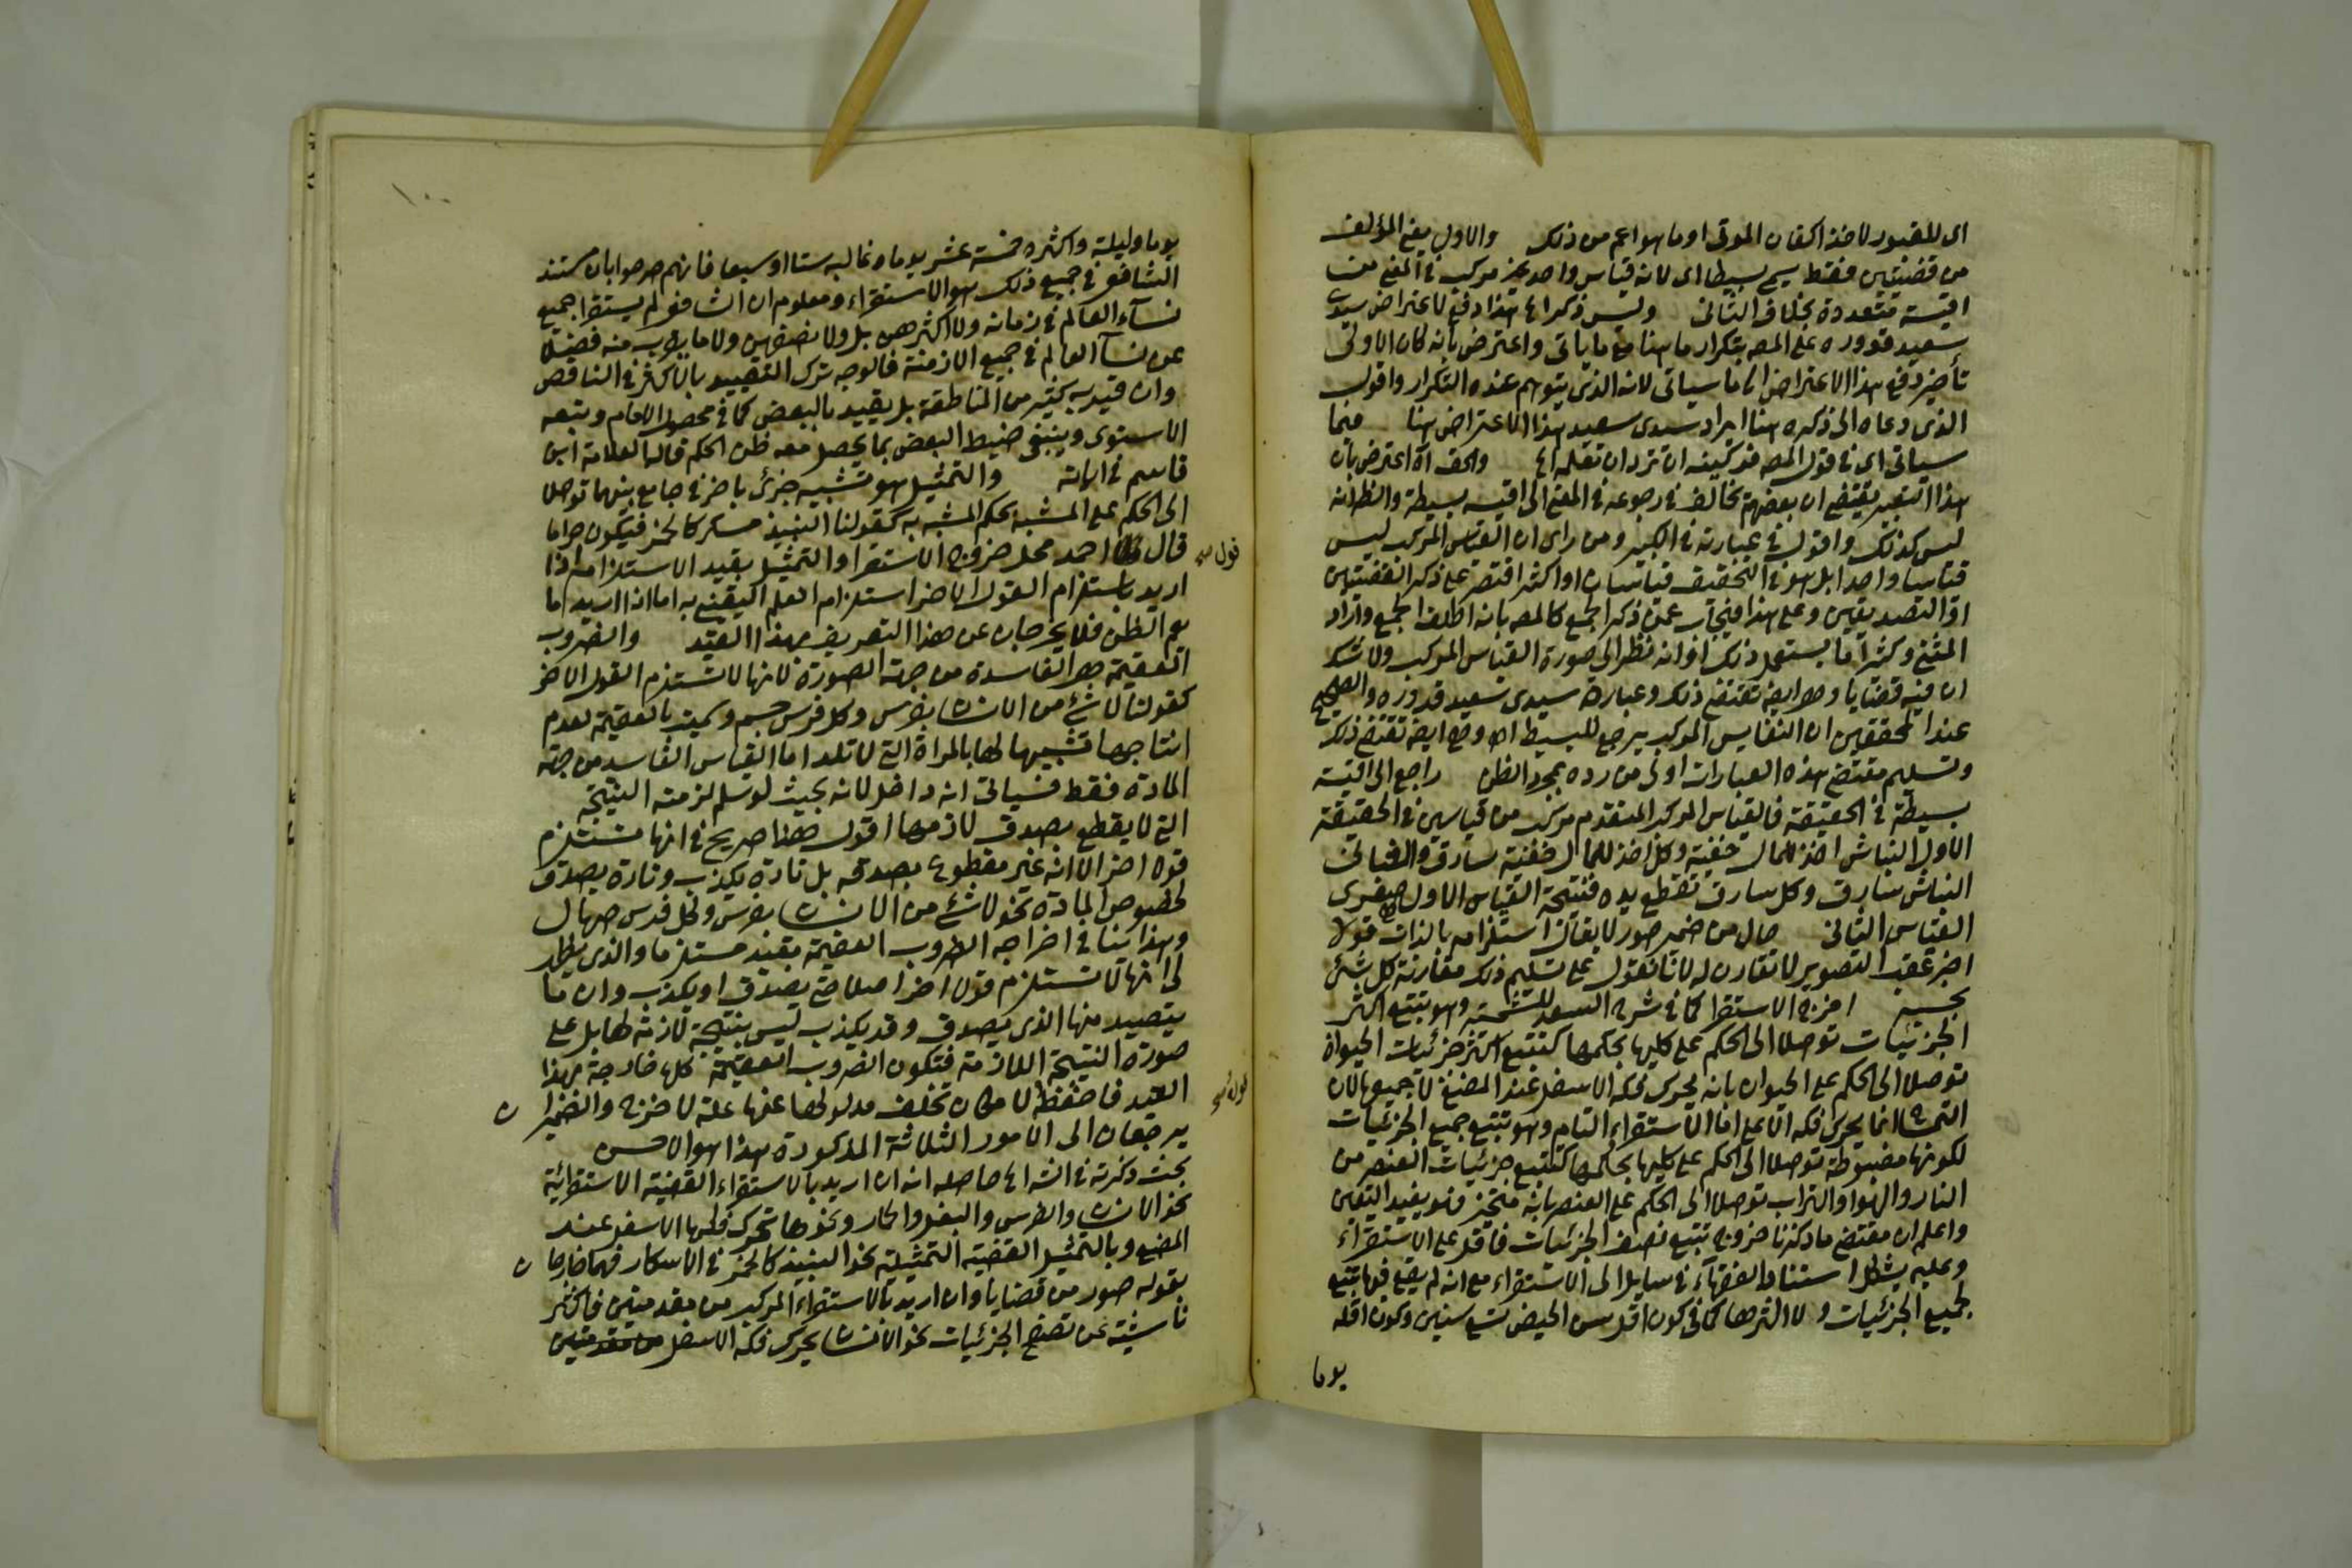 اى للقبور لاخذ اكفان الموتى او ما هو اعم من ذلك والاول يعنى المؤلف
من قضيتين فقط يسمى بسيطا اى لانه قياس واحد غير مركب فى المعنى من
اقيسة متعددة بخلاف الثانى وليس ذكر اهـ هذا دفع لاعتراض سيدى
سعيد قدوره على المص بتكرار ما هنا مع ما ياتى واعترض بانه كان الاولى
تأخير دفع هذا الاعتراض الى ما سياتى لانه الذى يتوهم عنده التكرار واقول
الذى دعاه الى ذكره هنا ايراد سيدى سعيد هذا الاعتراض هنا فيما
سياتى اى فى قول المص فركبنه ان ترد ان تعلمه اهـ والحق اهـ اعترض بان
هذا التعبير يقتضى ان بعضهم يخالف فى رجوعه فى المعنى الى اقيسة بسيطة والظ انه
ليس كذلك واقول فى عبارته فى الكبير ومن راى ان القياس المركب ليس
قياسا واحدا بل هو فى التحقيق قياسان او اكثر اقتصر على ذكر القضيتين
او التصديقين وعلى هذا فيجاب عمن ذكر الجمع كالمص بانه اطلق الجمع واراد
المثنى وكثيرا ما يستعمل ذلك او انه نظر الى صورة القياس المركب ولا شك
ان فيه قضايا وهى ايضا تقتضى ذلك وعبارة سيدى سعيد قدوره والصحيح
عند المحققين ان القياس المركب يرجع للبسيط اهـ وهى ايضا تقتضى ذلك
وتسليم مقتضى هذه العبارات اولى من رده بمجرد الظن راجع الى اقيسة
بسيطة فى الحقيقة فالقياس المركب المتقدم مركب من قياسين فى الحقيقة
الاول النباش اخذ للمال خفية وكل اخذ للمال خفية سارق والثانى
النباش سارق وكل سارق تقطع يده فنتيجة القياس الاول صغرى
القياس الثانى حال من ضمير صور لا يقال استلزامه بالذات قولا
اخر عقب التصوير لا تقارن له لانا نقول على تسليم ذلك مقارنة كل شئ
بحسبه اخرج الاستقرا كما فى شرح السعد للشمسية وهو تتبع اكثر
الجزئيات توصلا الى الحكم على كليها بحكمها كتتبع اكثر جزئيات الحيوان
توصلا الى الحكم على الحيوان بانه يحرك فكه الاسفل عند المضغ لا جميعها لان
التمساح انما يحرك فكه الاعلى اما الاستقراء التام وهو تتبع جميع الجزئيات
لكونها مضبوطة توصلا الى الحكم على كليها بحكمها كتتبع جزئيات العنصر من
النار والهوا والتراب توصلا الى الحكم على العنصر بانه متحيز فهو يفيد اليقين
واعلم ان مقتضى ما ذكرنا خروج تتبع نصف الجزئيات فاقل على الاستقراء
وعليه يشكل استناد الفقهاء فى مسايل الى الاستقراء مع انه لم يقع فيها تتبع
لجميع الجزئيات ولا اكثرها كما فى كون اقل سن الحيض تسع سنين وكون اقله
يوما
١٠٠
يوما وليلة واكثره خمسة عشر يوما وغالبه ستا او سبعا فانهم صرحوا بان مستند
الشافعى فى جميع ذلك هو الاستقراء ومعلوم ان الشافعى لم يستقرا جميع
نساء العالم فى زمانه ولا اكثرهن بل ولا نصفهن ولا ما يقرب منه فضلا
عن نساء العالم فى جميع الازمنة فالوجه ترك التقييد بالاكثر فى الناقص
وان قيد به كثير من المناطقة بل يقيد بالبعض كما فى محصول الامام وتبعه
الاسنوى وينبغى ضبط البعض بما يحصل معه ظن الحكم قاله العلامة ابن
قاسم فى اياته والتمثيل هو تشبيه جزئى باخر فى جامع بينهما توصلا
الى الحكم على المشبه بحكم المشبه به كقولنا النبيذ مسكر كالخمر فيكون حراما
قال احمد محل خروج الاستقرا والتمثيل بقيد الاستلزام اذا
اريد باستلزام القول الاخر استلزام العلم اليقينى به اما اذا اريد ما
يعم الظن فلا يخرجان عن هذا التعريف بهذا القيد والضروب
العقيمة هى الفاسدة من جهة الصورة لانها لا تستلزم القول الاخر
كقولنا لا شئ من الانسان بفرس وكل فرس جسم وسميت بالعقيمة لعدم
انتاجها تشبيها لها بالمراة التى لا تلد اما القياس الفاسد من جهة
المادة فقط فسياتى انه داخل لانه بحيث لو سلم لزمته النتيجة
التى لا يقطع بصدق لازمها اقول هذا صريح فى انها تستلزم
قولا اخر الا انه غير مقطوع بصدقه بل تارة يكذب وتارة يصدق
لخصوص المادة نحو لا شئ من الانسان بفرس وكل فرس صهال
وهذا ينافى اخراجه الضروب العقيمة بقيد مستلزما والذى يظهر
لى انها لا تستلزم قولا اخر اصلا حتى يصدق او يكذب وان ما
يتصيد منها الذى يصدق وقد يكذب ليس بنتيجة لازمة لها بل على
صورة النتيجة اللازمة فتكون الضروب العقيمة كلها خارجة بهذا
القيد فاحفظه لامكان تخلف مدلولها عنها علة لاخرج والضمير
يرجعان الى الامور الثلاثة المذكورة هذا هو الاحسن
بحث ذكرته فى الشـ اهـ حاصله انه ان اريد بالاستقراء القضية الاستقرائية
نحو الانسان والفرس والبغل والحمار ونحوها تحرك فكها الاسفل عند
المضغ وبالتمثيل القضية التمثيلية نحو النبيذ كالخمر فى الاسكار فهما خارجا ن
بقوله صور من قضايا وان اريد بالاستقراء المركب من مقدمتين
ناشئة عن تصفح الجزئيات نحو الانسان يحرك فكه الاسفل من مقدمتين